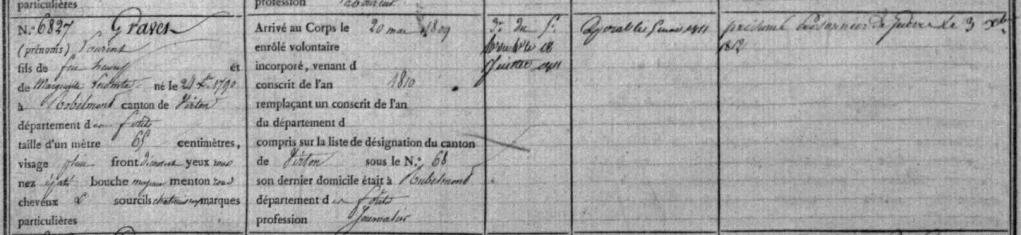 particulières
profession
N.º 6827 Graven
(prénoms) Laurent
fils de feu henry et
de Marguerite né le 24 1790
à Robelmond canton de Virton
département d es forêts
taille d'un mètre 65 centimètres,
visage plein front découvert yeux roux
nez épaté bouche moyenne menton rond
cheveux & sourcils châtains marques
particulières
Arrivé au Corps le 20 mai 1809
enrôlé volontaire
incorporé, venant d
conscrit de l'an 1810
remplaçant un conscrit de l'an
du département d
compris sur la liste de désignation du canton
de Virton sous le N.º 68
son dernier domicile était à Robelmond
département d es forêts
profession Journalier
présumé prisonnier de guerre le 3 Xbre
1812